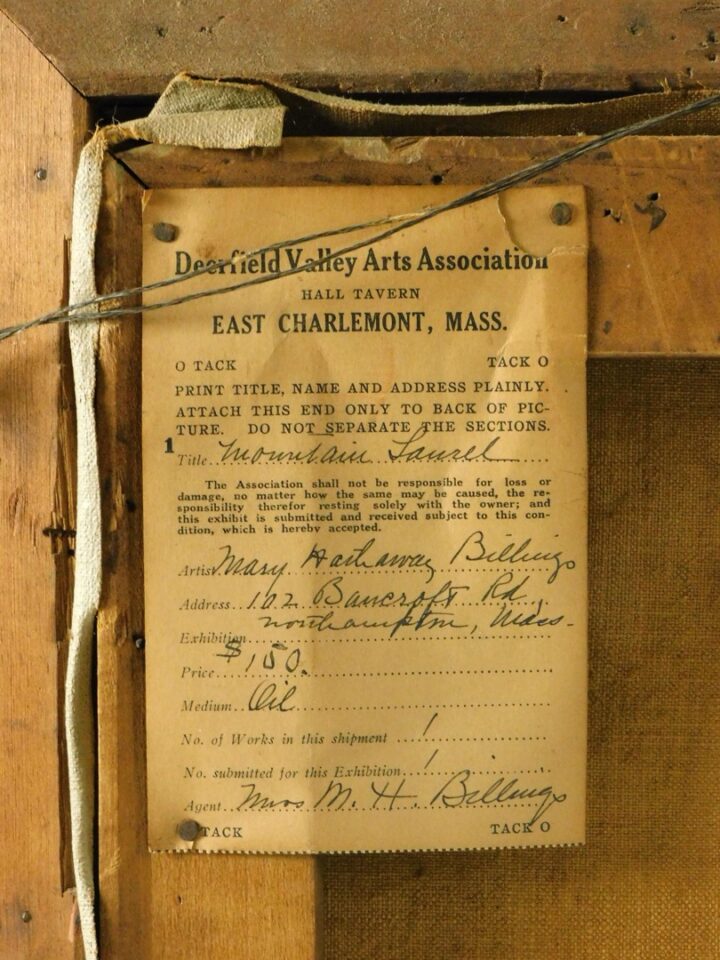 Deerfield Valley Arts Association
HALL TAVERN
EAST CHARLEMONT, MASS.
O TACK TACK O
PRINT TITLE, NAME AND ADDRESS PLAINLY.
ATTACH THIS END ONLY TO BACK OF PIC-
TURE. DO NOT SEPARATE THE SECTIONS.
1
Title Mountain Laurel
The Association shall not be responsible for loss or
damage, no matter how the same may be caused, the re-
sponsibility therefor resting solely with the owner; and
this exhibit is submitted and received subject to this con-
dition, which is hereby accepted.
Artist Mary Hathaway Billings
Address 102 Bancroft Rd
Northampton, Mass.
Exhibition
Price $150.
Medium Oil
No. of Works in this shipment 1
No. submitted for this Exhibition 1
Agent Mrs M. H. Billings
TACK TACK O